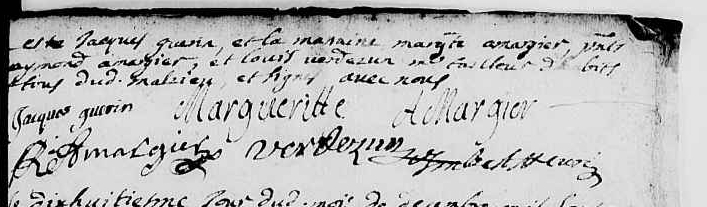 este Jacques guerin, et la maraine margte amargier, pnts
aymond amargier, et Louis verdezun me tailleur d'habits
tous dud. malzieu, et signés avec nous
Jacques guerin Margueritte AMargier
RAmargier verdezun
le dixhuitieme Jour dud. mois de decembre mil